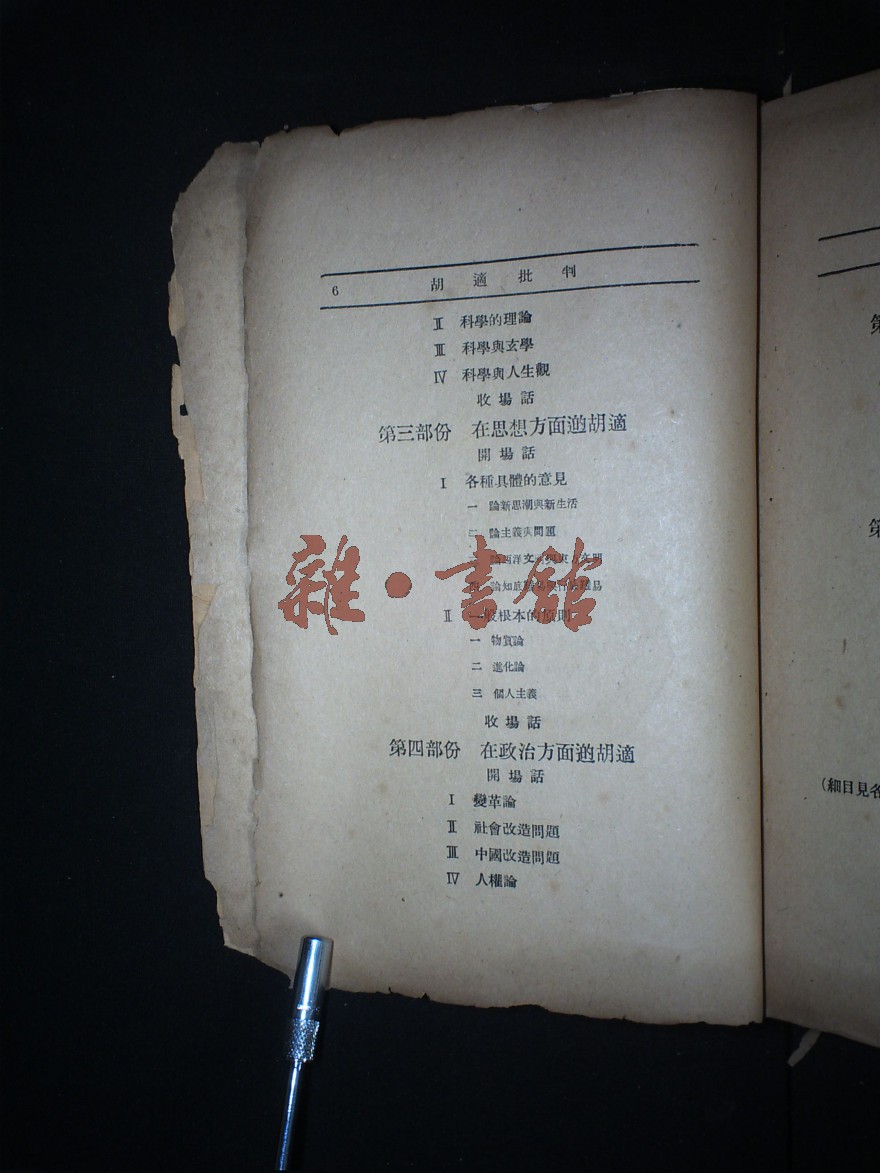 6 胡適批判
Ⅱ 科學的理論
Ⅲ 科學與玄學
Ⅳ 科學與人生觀
收場話
第三部份 在思想方面的胡適
開場話
Ⅰ 各種具體的意見
一 論新思潮與新生活
二 論主義與問題
論西洋文
論知
雜·書館
Ⅱ 一般根本的原則
一 物質論
二 進化論
三 個人主義
收場話
第四部份 在政治方面的胡適
開場話
Ⅰ 變革論
Ⅱ 社會改造問題
Ⅲ 中國改造問題
Ⅳ 人權論
第
第
(細目見各